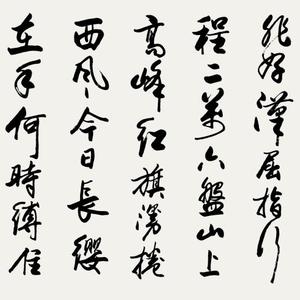 非好漢屈指行
程二萬六盤山上
高峰紅旗漫捲
西風今日長纓
在手何時縛住